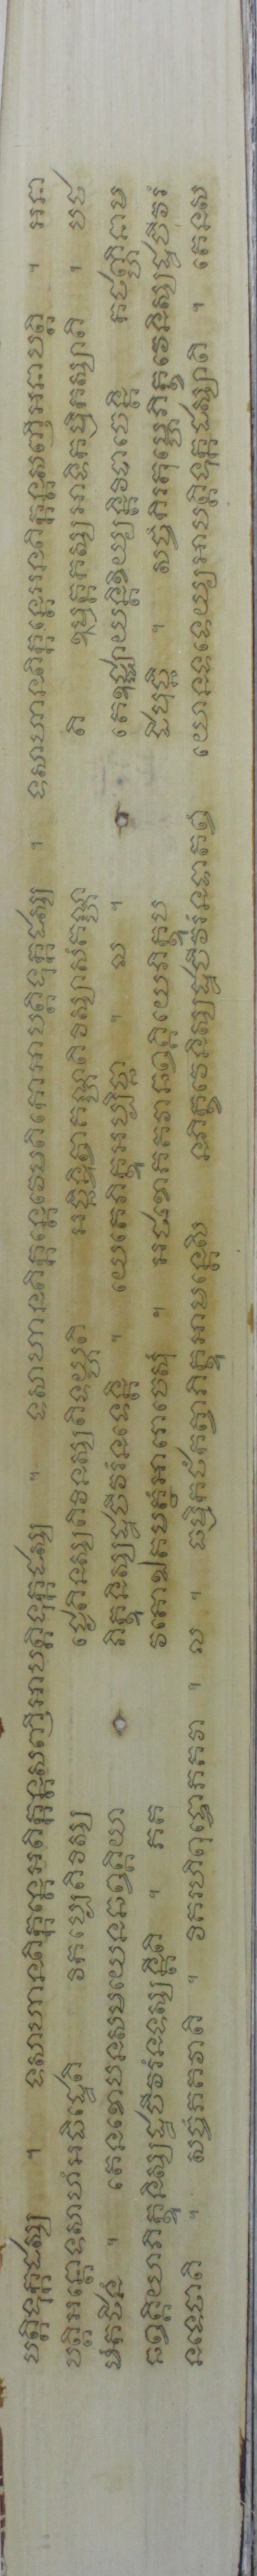 បត្តិទុក្កដស្ស ។ ទសាហានតិក្កន្តេអតិក្កន្តសញ្ញីអាបត្តិទុក្កដស្ស ។ ទសាហានតិក្កន្តេវេមតិកោអាបត្តិទុក្កដស្ស ។ ទសាហានតិក្កន្តេអនតិក្កន្តសញ្ញីអនាបត្តិ ។ អនា
បត្តិអន្តោទសាហំអធិដ្ឋេតិ វិកប្បេតិវិស្ស ជ្ជេតិនស្សតិវិនស្សតិទយ្ហតិ អច្ឆិន្ទិត្វាគណ្ហតិវិស្សាសំគណ្ហ តិ ឧម្មត្តកស្សអាទិកម្មិកស្សាតិ ។ បឋ
មកឋិនំ ។ តេនខោបនសមយេនឆព្វគ្គិយា ភិក្ខូនិស្សដ្ឋចីវរំនទេន្តិ ។ យេតេភិក្ខូអប្បិច្ឆា ។ ល ។ តេឧជ្ឈាយន្តិខិយ្យន្តិវិបាចេន្តិ កថញ្ហិនាម
ឆព្វគ្គិយាភិក្ខូនិស្សដ្ឋចីវរំនទស្សន្តីតិ ។ ភគ វតោឯតមត្ថំអារោចេសុំ ។ អថខោភគវាឆព្វគ្គិយេភិក្ខូប ដិបុច្ឆិ ។ សច្ចំកិរតុម្ហេភិក្ខវេនិស្សដ្ឋចីវរំ
នទេថាតិ ។ សច្ចំភគវាតិ ។ វិគរហិពុទ្ធោភគវា ។ ល ។ ធម្មិកថំកត្វាភិក្ខូអាមន្តេសិ នភិក្ខវេនិស្សដ្ឋចីវរំនទាតព្វំ យោនទទេយ្យអាបត្តិទុក្កដស្សាតិ ។ តេនស